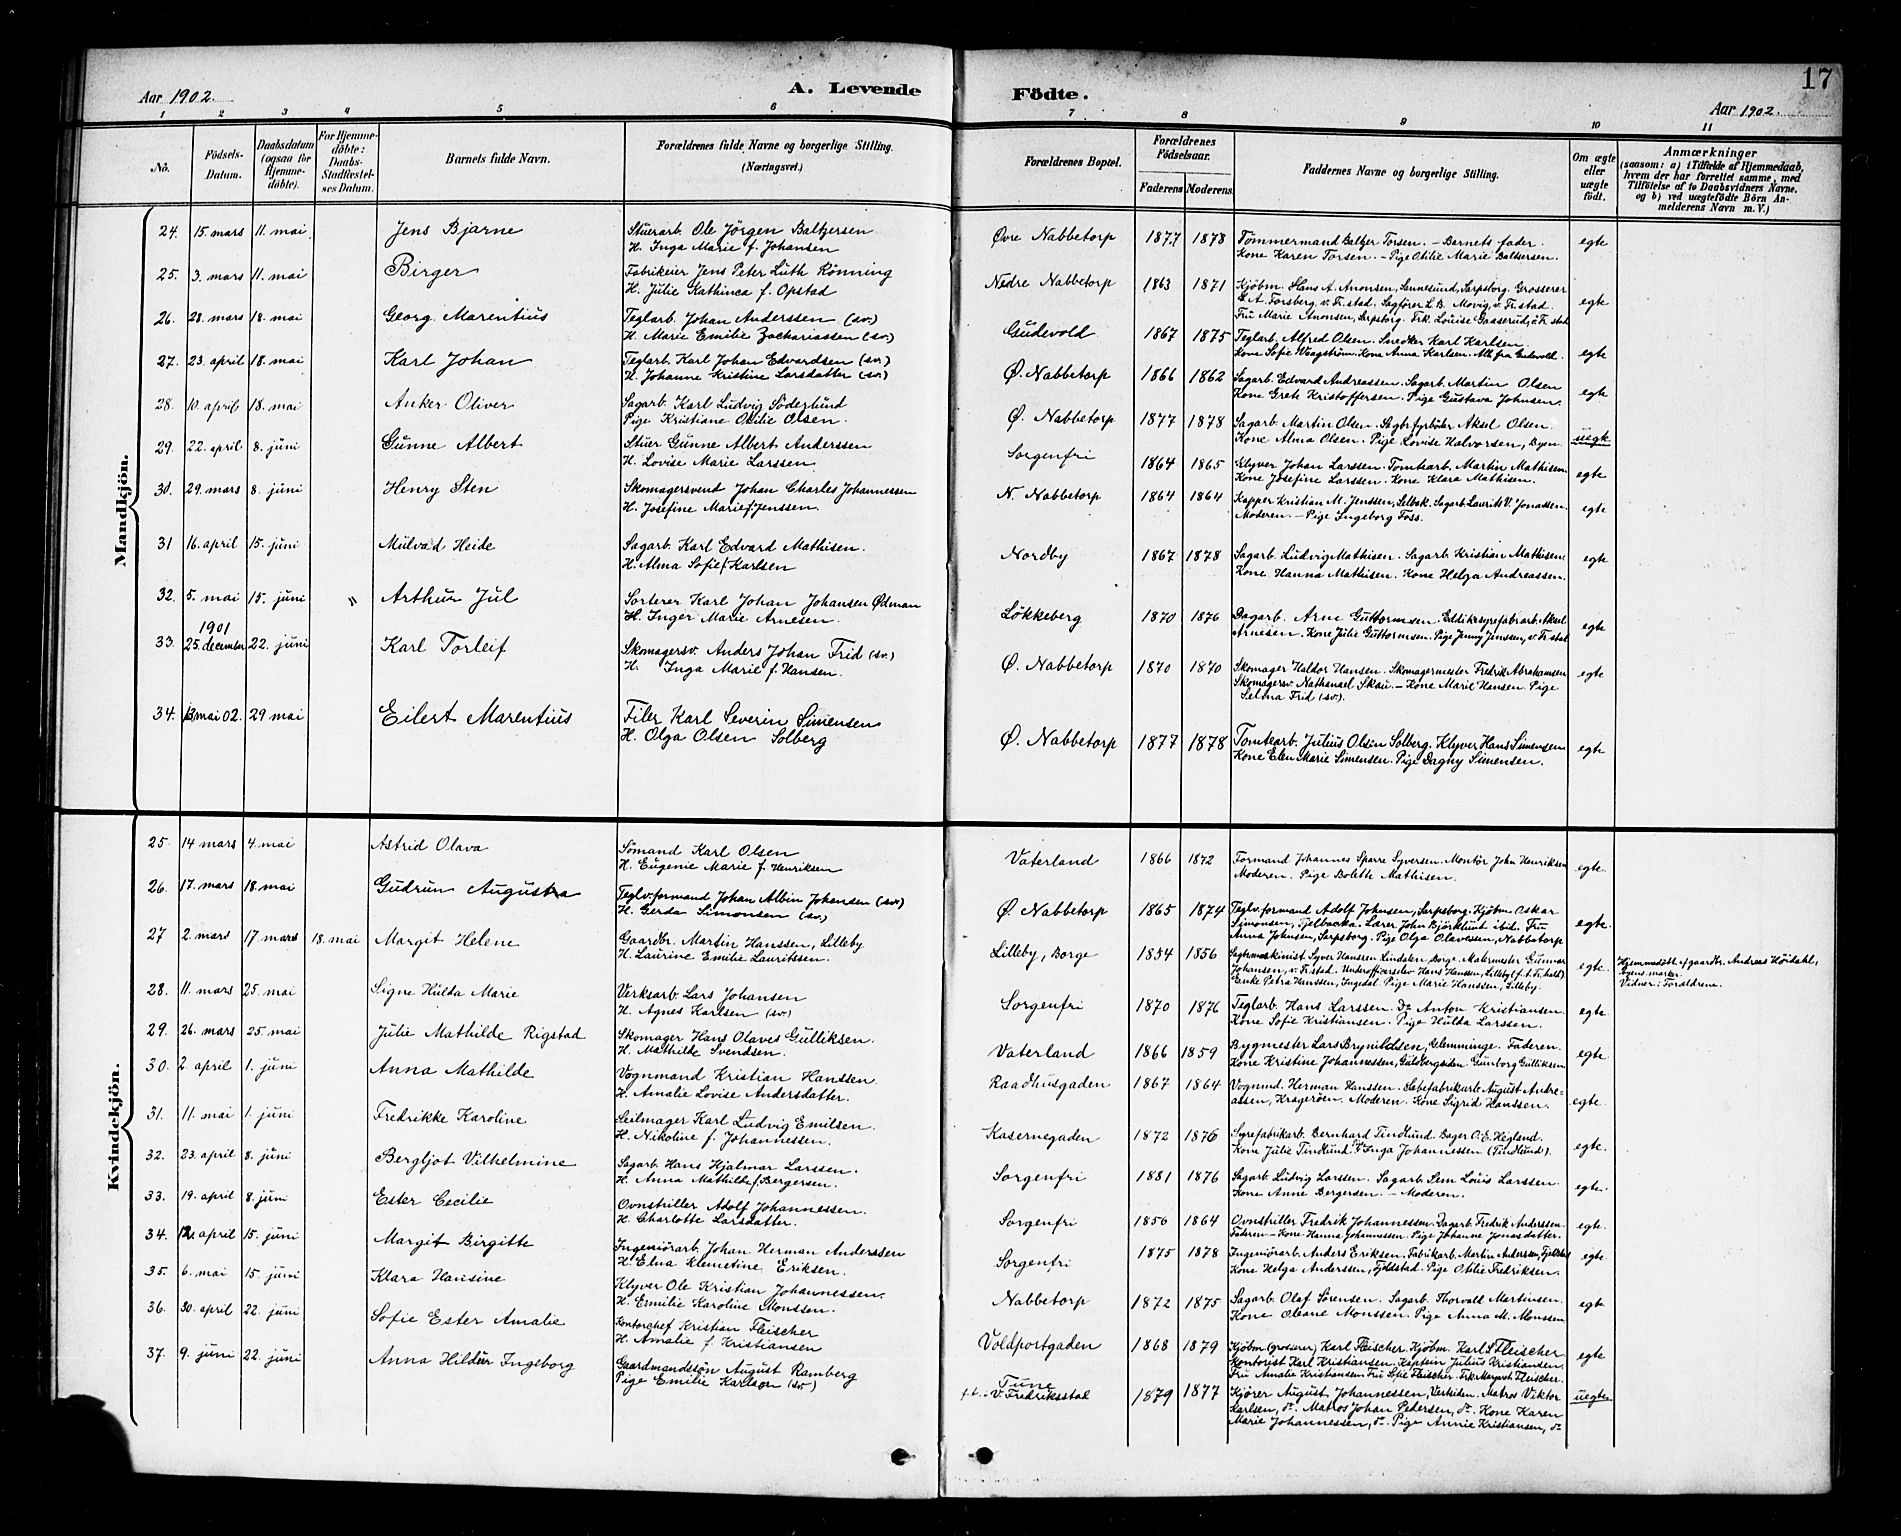 17
Aar 1902. A. Levende Födte. Aar 1902.
1 2 3 4 5 6 7 8 9 10 11
No. Födsels-Datum. Daabsdatum (ogsaa for Hjemme-döbte). For Hjemme-döbte: Daabs-Stadfæstel-ses Datum. Barnets fulde Navn. Forældrenes fulde Navne og borgerlige Stilling. (Næringsvei.) Forældrenes Bopæl. Forældrenes Födselsaar. Faderens Moderens. Faddernes Navne og borgerlige Stilling. Om ægte eller uægte födt. Anmærkninger (saasom: a) i Tilfælde af Hjemmedaab, hvem der har forrettet samme, med Tilföielse af to Daabsvidners Navne, og b) ved uægtefödte Börn An-melderens Navn m. V.)
Mandkjön.
24. 15. mars 11. mai Jens Bjarne Stuerarb. Ole Jörgen Baltzersen Øvre Nabbetorp 1877 1878 Tömmermand Baltzer Torsen. – Barnets fader. egte
H. Inga Marie f. Johansen Kone Karen Torsen. – Pige Otilie Marie Baltzersen.
25. 3. mars 11. mai Birger Fabrikeier Jens Peter Luth Rönning Nedre Nabbetorp 1863 1871 Kjöbm. Hans A. Anonsen, Sannesund, Sarpsborg. Grosserer egte
H. Julie Kathinca f. Opstad A. Forsberg v. Fr.stad. Sagförer L. B. Movig, v. Fr.stad.
Fru Marie Anonsen, Sarpsborg. Frk. Louise Gaaserud, v. Fr.stad
26. 28. mars 18. mai Georg Marentius Teglarb. Johan Anderssen (sv.) Gudevold 1867 1875 Teglarb. Alfred Olsen. Snedker Karl Karlsen. egte
H. Marie Emilie Zachariassen (sv.) Kone Sofie Waagström. Kone Anna Karlsen. Alle fra Gudevold.
27. 23. april 18. mai Karl Johan Teglarb. Karl Johan Edvardsen (sv.) Ø. Nabbetorp 1866 1862 Sagarb. Edvard Andreassen. Sagarb. Martin Olsen egte
H. Johanne Kristine Larsdatter (sv.) Kone Grete Kristoffersen. Pige Gustava Johnsen.
28. 10. april 18. mai Anker Oliver Sagarb. Karl Ludvig Söderlund Ø. Nabbetorp 1877 1878 Sagarb. Martin Olsen. Sagbr.fyrböter Aksel Olsen. uegte
Pige Kristiane Otilie Olsen. Kone Alma Olsen. Pige Lovise Halvorsen, Byen
29. 22. april 8. juni Gunne Albert Stuer Gunne Albert Anderssen Sorgenfri 1864 1865 Klyver Johan Larssen. Tomtearb. Martin Mathisen. egte
H. Lovise Marie Larssen Kone Josefine Larssen. Kone Klara Mathisen.
30. 29. mars 8. juni Henry Sten Skomagersvend Johan Charles Johannessen N. Nabbetorp 1864 1864 Kapper Kristian M. Jenssen, Selbak. Sagarb. Laurits V. Jonassen. egte
H. Josefine Marie f. Jenssen. Moderen. – Pige Ingeborg Foss.
31 16. april 15. juni Milvad Heide Sagarb. Karl Edvard Mathisen. Nordby 1867 1878 Sagarb. Ludvig Mathisen. Sagarb. Kristian Mathisen. egte
H. Alma Sofie f. Karlsen Kone Hanna Mathisen. Kone Helga Andreassen.
32. 5. mai 15. juni " Arthur Jul Sorterer Karl Johan Johansen Ødman Lökkeberg 1870 1876 Dagarb. Arne Guttormsen. Eddiksyrefabr.arb. Aksel egte
H. Inger Marie Arnesen. Arnesen. Kone Julie Guttormsen. Pige Jenny Jenssen, v. Fr.stad
1901
33. 25. december 22. juni Karl Torleif Skomagersv. Anders Johan Frid (sv.) Ø. Nabbetorp 1870 1870 Skomager Haldor Hansen. Skomagermester Fredrik Abrahamsen egte
H. Inga Marie f. Hansen. Skomagersv. Nathanael Skau. – Kone Marie Hansen. Pige
Selma Frid (sv.).
34. 13 mai 02. 29 mai Eilert Marentius Filer Karl Severin Simensen Ø. Nabbetorp 1877 1878 Tomtearb. Julius Olsen Solberg. Klyver Hans Simensen egte
H. Olga Olsen Solberg Kone Elen Marie Simensen. Pige Dagny Simensen.
Kvindekjön.
25. 14 mars 4. mai Astrid Olava Sömand Karl Olsen Vaterland 1866 1872 Formand Johannes Sparre Syversen. Montör John Henriksen egte.
H. Eugenie Marie f. Henriksen Moderen. Pige Bolette Mathisen.
26. 17. mars 18. mai Gudrun Augusta Teglv.formand Johan Albin Johansen (sv.) Ø. Nabbetorp 1865 1874 Teglv.formand Adolf Johnsen, Sarpsborg. Kjöbm. Oskar egte.
H. Gerda Simonsen (sv.) Simonsen, Fjelbacka. Lærer John Björklund ibid. Fru
Anna Johnsen, Sarpsborg. Pige Olga Olavesen, Nabbetorp
27 2. mars 17 mars 18. mai Margit Helene Gaardbr. Martin Hanssen, Lilleby Lilleby, Borge 1854 1856 Sagbr.maskinist Syver Hanssen Lindalen, Borge. Malermester Gunnar egte. Hjemmedöbt af gaardbr. Andreas Höidahl,
H. Laurine Emilie Lauritssen. Johansen, v. Fr.stad. Underoffiserselev Hans Hanssen, Lilleby (f. t. Fr.hald) Byens marker.
Enke Petra Hanssen, Ingedal. Pige Marie Hanssen, Lilleby. Vidner: Foræld­rene.
28. 11. mars 25. mai Signe Hulda Marie Verksarb. Lars Johansen Sorgenfri 1870 1876 Teglarb. Hans Larssen. Do Anton Kristiansen. egte.
H. Agnes Karlsen (sv.) Kone Sofie Kristiansen. Pige Hulda Larssen.
29. 26. mars 25. mai Julie Mathilde Rigstad Skomager Hans Olaves Gulliksen. Vaterland 1866 1859 Bygmester Lars Brynildsen, Glemminge. Faderen. egte.
H. Mathilde Svendsen. Kone Kristine Johannessen, Guldbergsiden. Gunborg Gulliksen
30. 2. april 1. juni Anna Mathilde Vognmand Kristian Hanssen. Raadhusgaden 1867 1864 Vognmd. Herman Hanssen. Sæbefabrikarb. August Andre- egte.
H. Amalie Lovise Andersdatter. assen, Kragerøen. Moderen. Kone Sigrid Hanssen.
31. 11. mai 1. juni Fredrikke Karoline Seilmager Karl Ludvig Emilsen. Kasernegaden 1872 1876 Syrefabrikarb. Bernhard Tindlund. Bager O. E. Høgland. egte.
H. Nikoline f. Johannessen. Kone Julie Tindlund. Inga Johannessen (Tindlund).
32. 23. april 8. juni Bergljot Vilhelmine Sagarb. Hans Hjalmar Larssen. Sorgenfri 1881 1876 Sagarb. Ludvig Larssen. Sagarb. Sem Louis Larssen egte.
H. Anna Mathilde f. Bergersen. Kone Anne Bergersen. – Moderen.
33. 19. april 8. juni Ester Cecilie Ovnstiller Adolf Johannessen. Sorgenfri 1856 1864 Ovnstiller Fredrik Johannessen. Dagarb. Fredrik Anderssen egte.
H. Charlotte Larsdatter. Faderen – Kone Hanna Johannessen. Pige Johanne Jonasdatter.
34. 12. april 15. juni Margit Birgitte Ingeniörarb. Johan Herman Anderssen Sorgenfri 1875 1878 Ingeniörarb. Anders Eriksen. Fabrikarb. Martin Anderssen, Fjeldstad egte
H. Elna Klemetine Eriksen. Kone Helga Anderssen, Fjeldstad. Pige Otilie Fredriksen.
35. 6. mai 15. juni Klara Hansine Klyver Ole Kristian Johannessen. Nabbetorp 1872 1875 Sagarb. Olaf Sörensen. Sagarb. Thorvall Martinsen. egte
H. Emilie Karoline Monssen. Kone Oleane Monssen. Pige Anna M. Monssen
36. 30. april 22. juni Sofie Ester Amalie Kontorchef Kristian Fleischer Voldportgaden 1868 1879 Kjöbm. (grosserer) Karl Fleischer. Kjöbm. Karl S. Fleischer egte
H. Amalie f. Kristiansen Kontorist Karl Kristiansen. Kaptein Julius Kristiansen.
Fru Amalie Kristiansen. Fru Sofie Fleischer. Frk. Margareth Fleischer.
37. 9. juni 22. juni Anna Hildur Ingeborg Gaardmandssön August Ramberg Tune 1879 1877 Kjörer August Johannessen, Vestsiden. Matros Viktor uegte
Pige Emilie Karlson (sv.) f.t. v. Fredriksstad Karlsen, do. Matros Johan Pedersen, do. Kone Karen
Marie Johannessen, do. Pige Annie Kristiansen, do